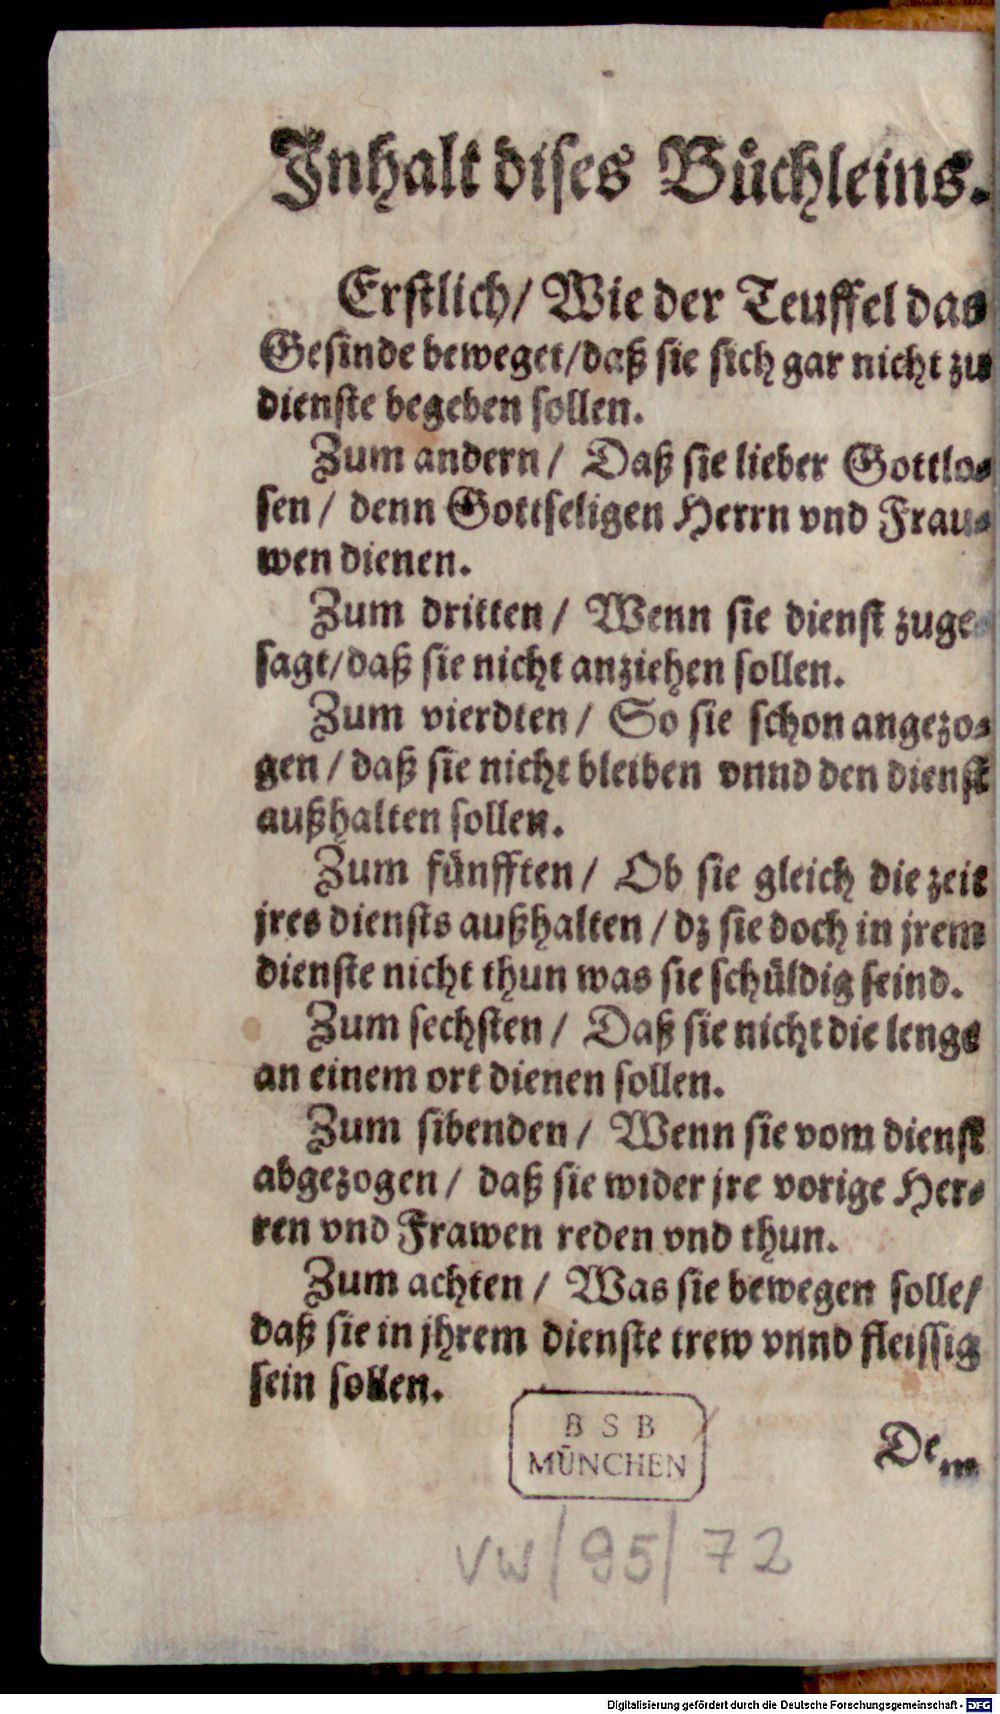 Inhalt dises Bůchleins.
Erstlich/ Wie der Teuffel das
Gesinde beweget/daß sie sich gar nicht zu
dienste begeben sollen.
Zum andern/ Daß sie lieber Gottlo-
sen/ denn Gottseligen Herrn vnd Frau-
wen dienen.
Zum dritten/ Wenn sie dienst zuge-
sagt/daß sie nicht anziehen sollen.
Zum vierdten/ So sie schon angezo-
gen/ daß sie nicht bleiben vnnd den dienst
außhalten sollen.
Zum fünfften/ Ob sie gleich die zeit
jres diensts außhalten/ dz sie doch in jrem
dienste nicht thun was sie schüldig seind.
Zum sechsten/ Daß sie nicht die lenge
an einem ort dienen sollen.
Zum sibenden/ Wenn sie vom dienst
abgezogen/ daß sie wider jre vorige Her-
ren vnd Frawen reden vnd thun.
Zum achten/ Was sie bewegen solle/
daß sie in jhrem dienste trew vnnd fleissig
sein sollen.
Dem
B S B
MÜNCHEN
VW/95/72
Digitalisierung gefördert durch die Deutsche Forschungsgemeinschaft - DFG